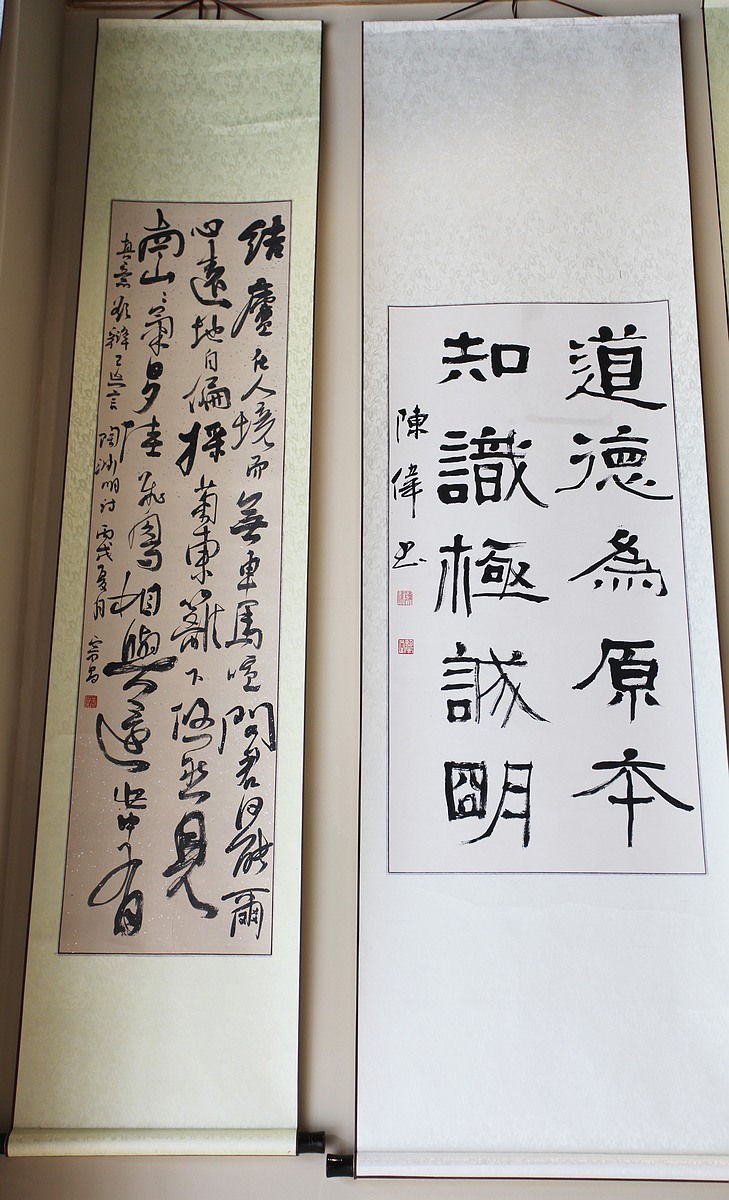 道德為原本
知識極誠明
陳偉书
結廬在人境而無車馬喧問君何能爾
心遠地自偏採菊東籬下悠然見
南山〻氣日夕佳飛鳥相與還此中有
真意欲辯已忘言 陶淵明诗 丙戌夏月